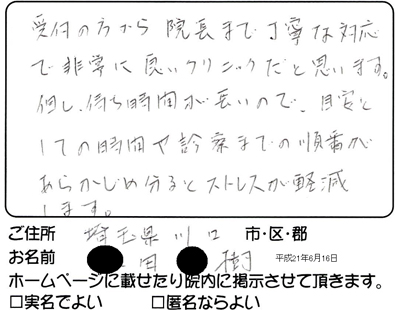 受付の方から院長まで丁寧な対応
で非常に良いクリニックだと思います。
但し、待ち時間が長いので、目安と
しての時間や診察までの順番が
あらかじめ分るとストレスが軽減
します。
ご住所 埼玉県川口 市・区・郡
お名前 田 樹 平成21年6月16日
ホームページに載せたり院内に掲示させて頂きます。
□実名でよい □匿名ならよい